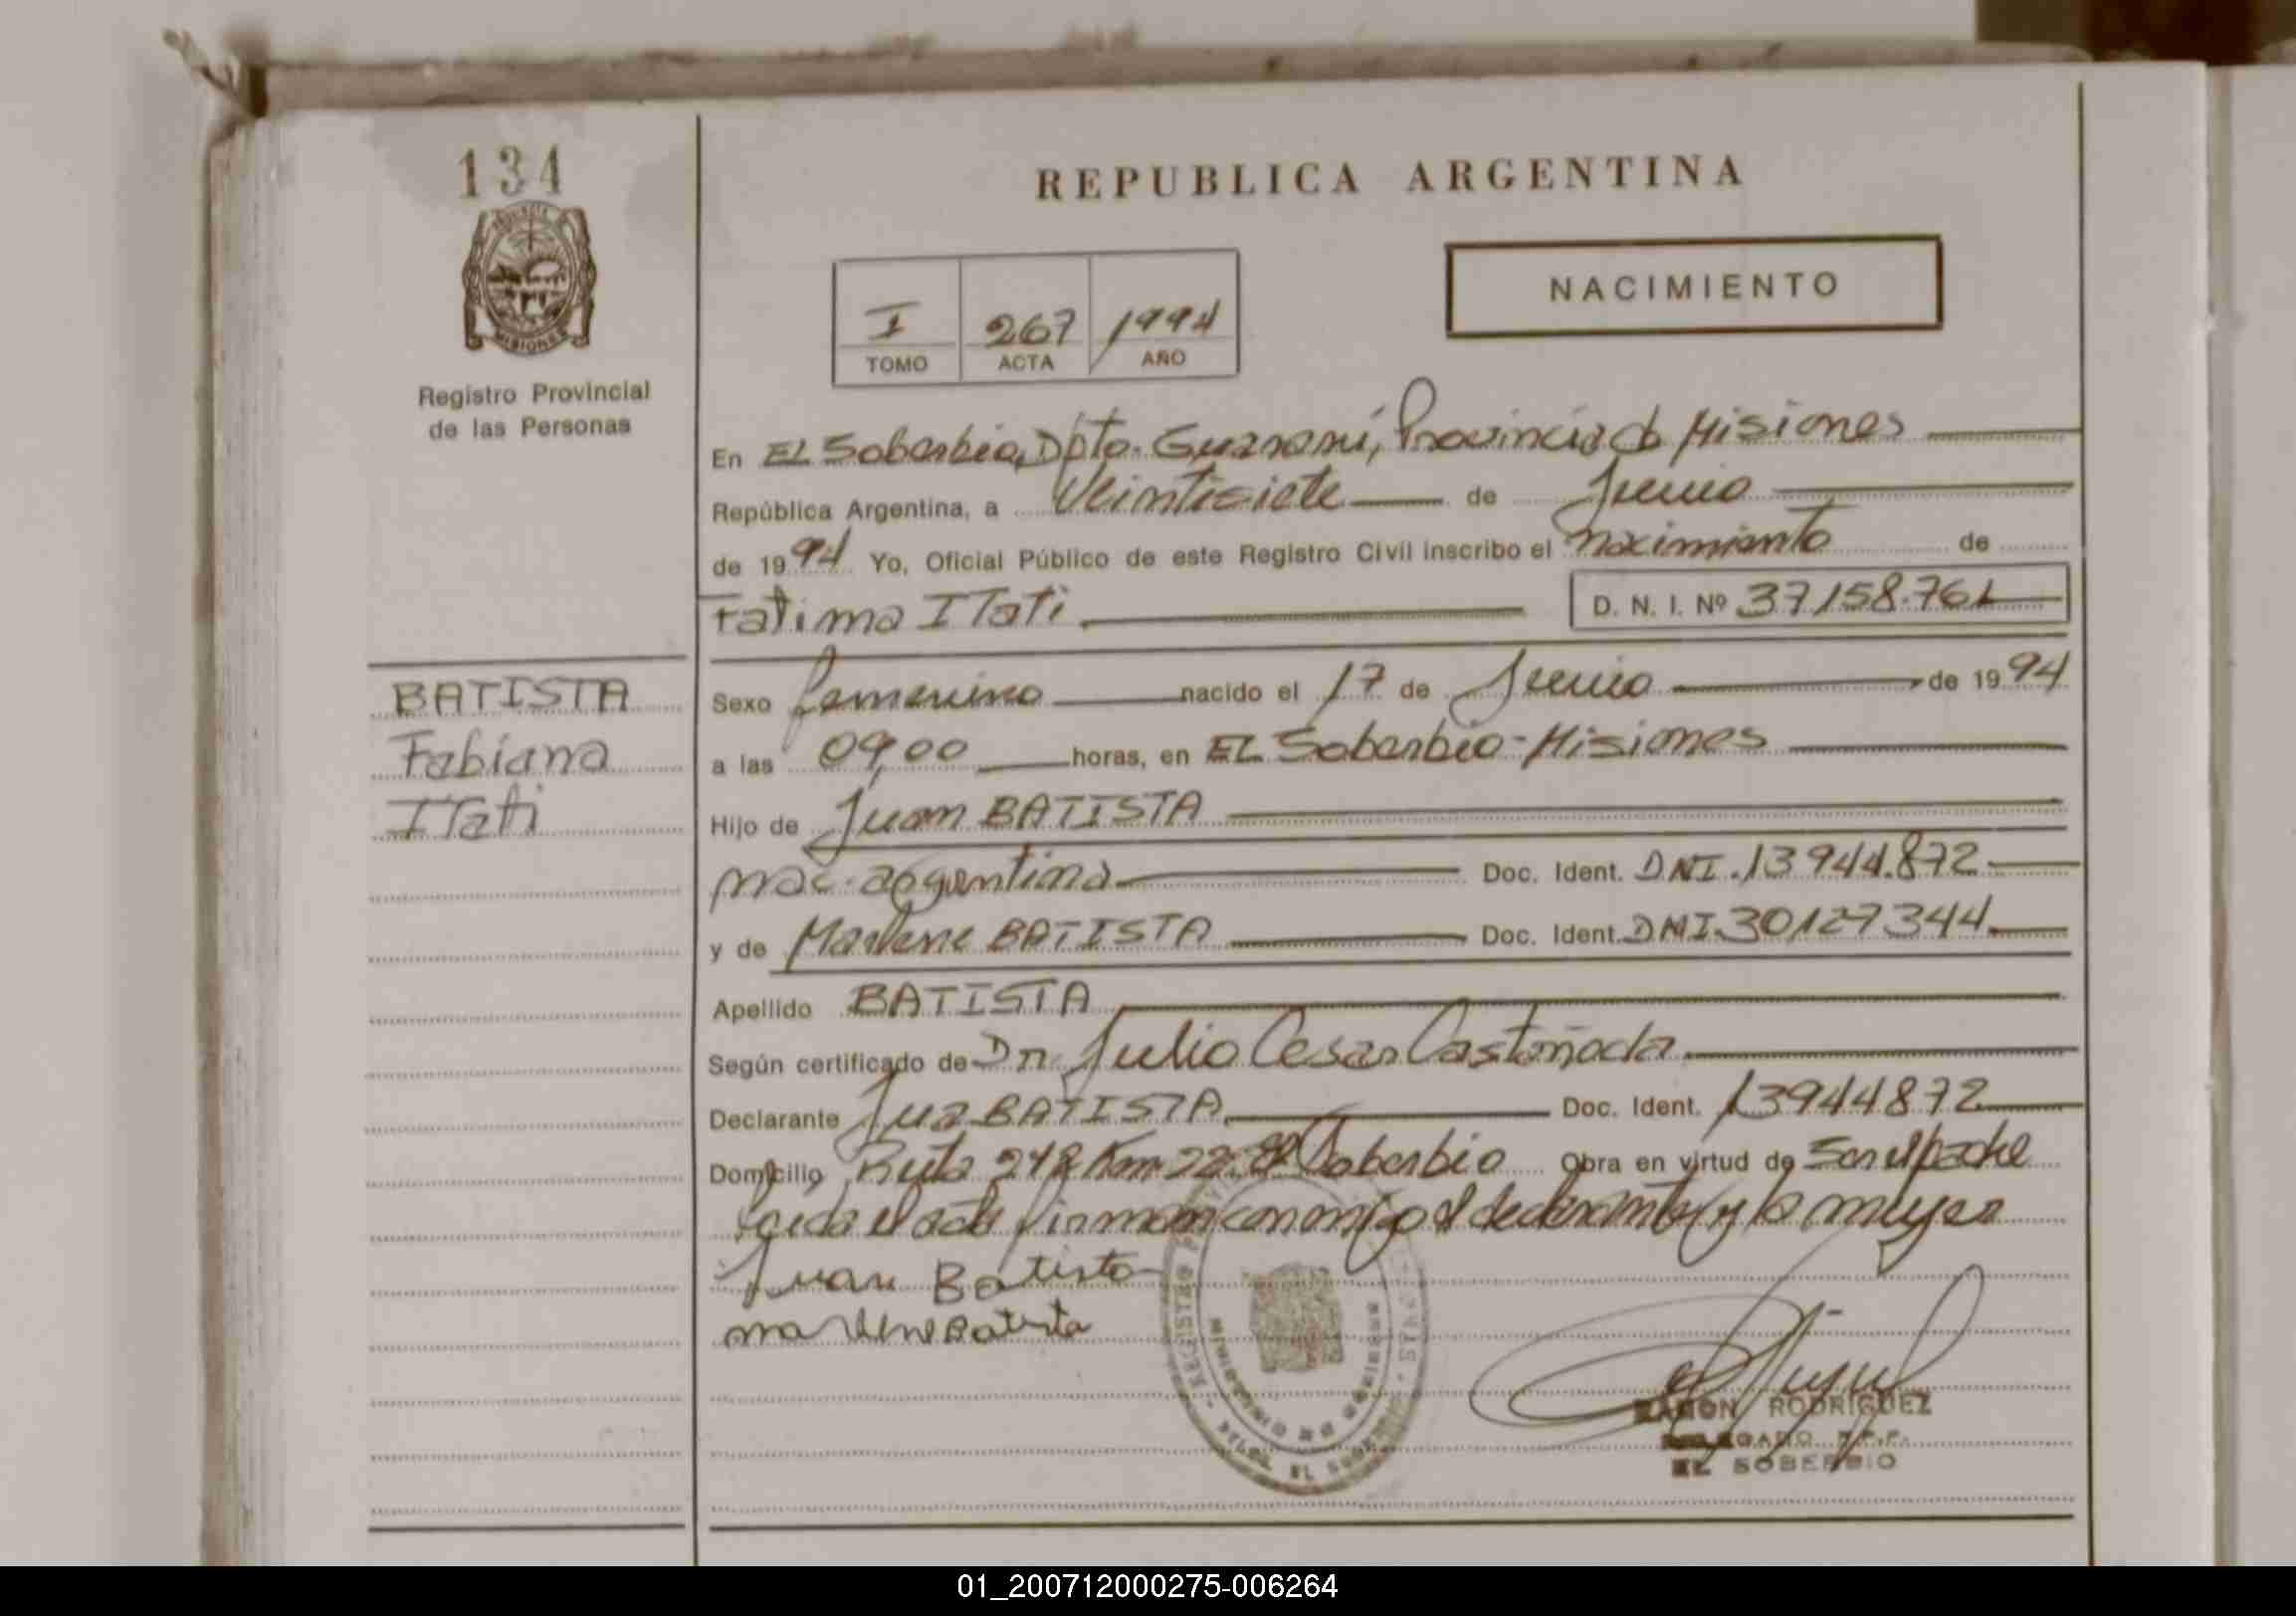 134
REPUBLICA ARGENTINA
NACIMIENTO
I 267 1994
TOMO ACTA AÑO
PROVINCIA
MISIONES
Registro Provincial
de las Personas
En EL Soberbio, Dpto. Guarani, Provincia de Misiones
República Argentina, a Veintisiete de Junio
de 1994 Yo, Oficial Público de este Registro Civil inscribo el nacimiento de
Fatima ITati D. N. I. Nº 37158.761
BATISTA
Fabiana
ITati
Sexo femenino nacido el 17 de Junio de 1994
a las 09,00 horas, en EL Soberbio-Misiones
Hijo de Juan BATISTA
nac. argentina Doc. Ident. DNI.13944.872
y de Marlene BATISTA Doc. Ident. DNI.30127344
Apellido BATISTA
Según certificado de Dr. Julio Cesar Castañeda
Declarante Jua BATISTA Doc. Ident. 13944872
Domicilio Ruta Km Soberbio Obra en virtud de Ser el padre
el acta firman conmigo el declarante y la mujer
Juan Batista
marlene Batista
RAMON RODRIGUEZ
DELEGADO R.P.P.
EL SOBERBIO
01_200712000275-006264